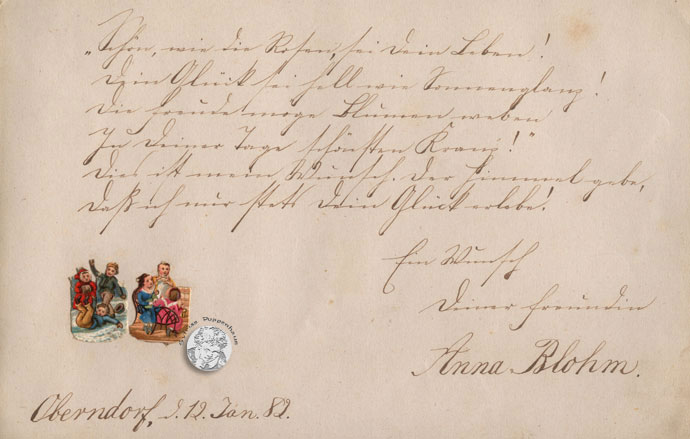 „Schön, wie die Rosen, sei Dein Leben!
Dein Glück sei hell wie Sonnenglanz!
Die Freude möge Blumen weben
In Deiner Tage schönsten Kranz!“
Dies ist mein Wunsch. Der Himmel gebe,
Daß ich nur stets Dein Glück erlebe!
Ein Wunsch
Deiner Freundin
Anna Blohm.
Puppenhaus
Oberndorf, d. 12. Jan. 82.